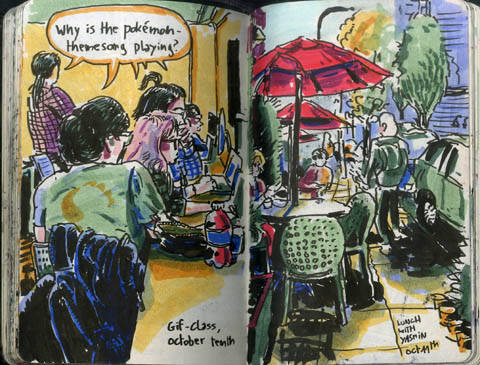 Why is the pokémon-
themesong playing?
Gif-class,
october tenth
LUNCH
WITH
YASMIN
oct 11th